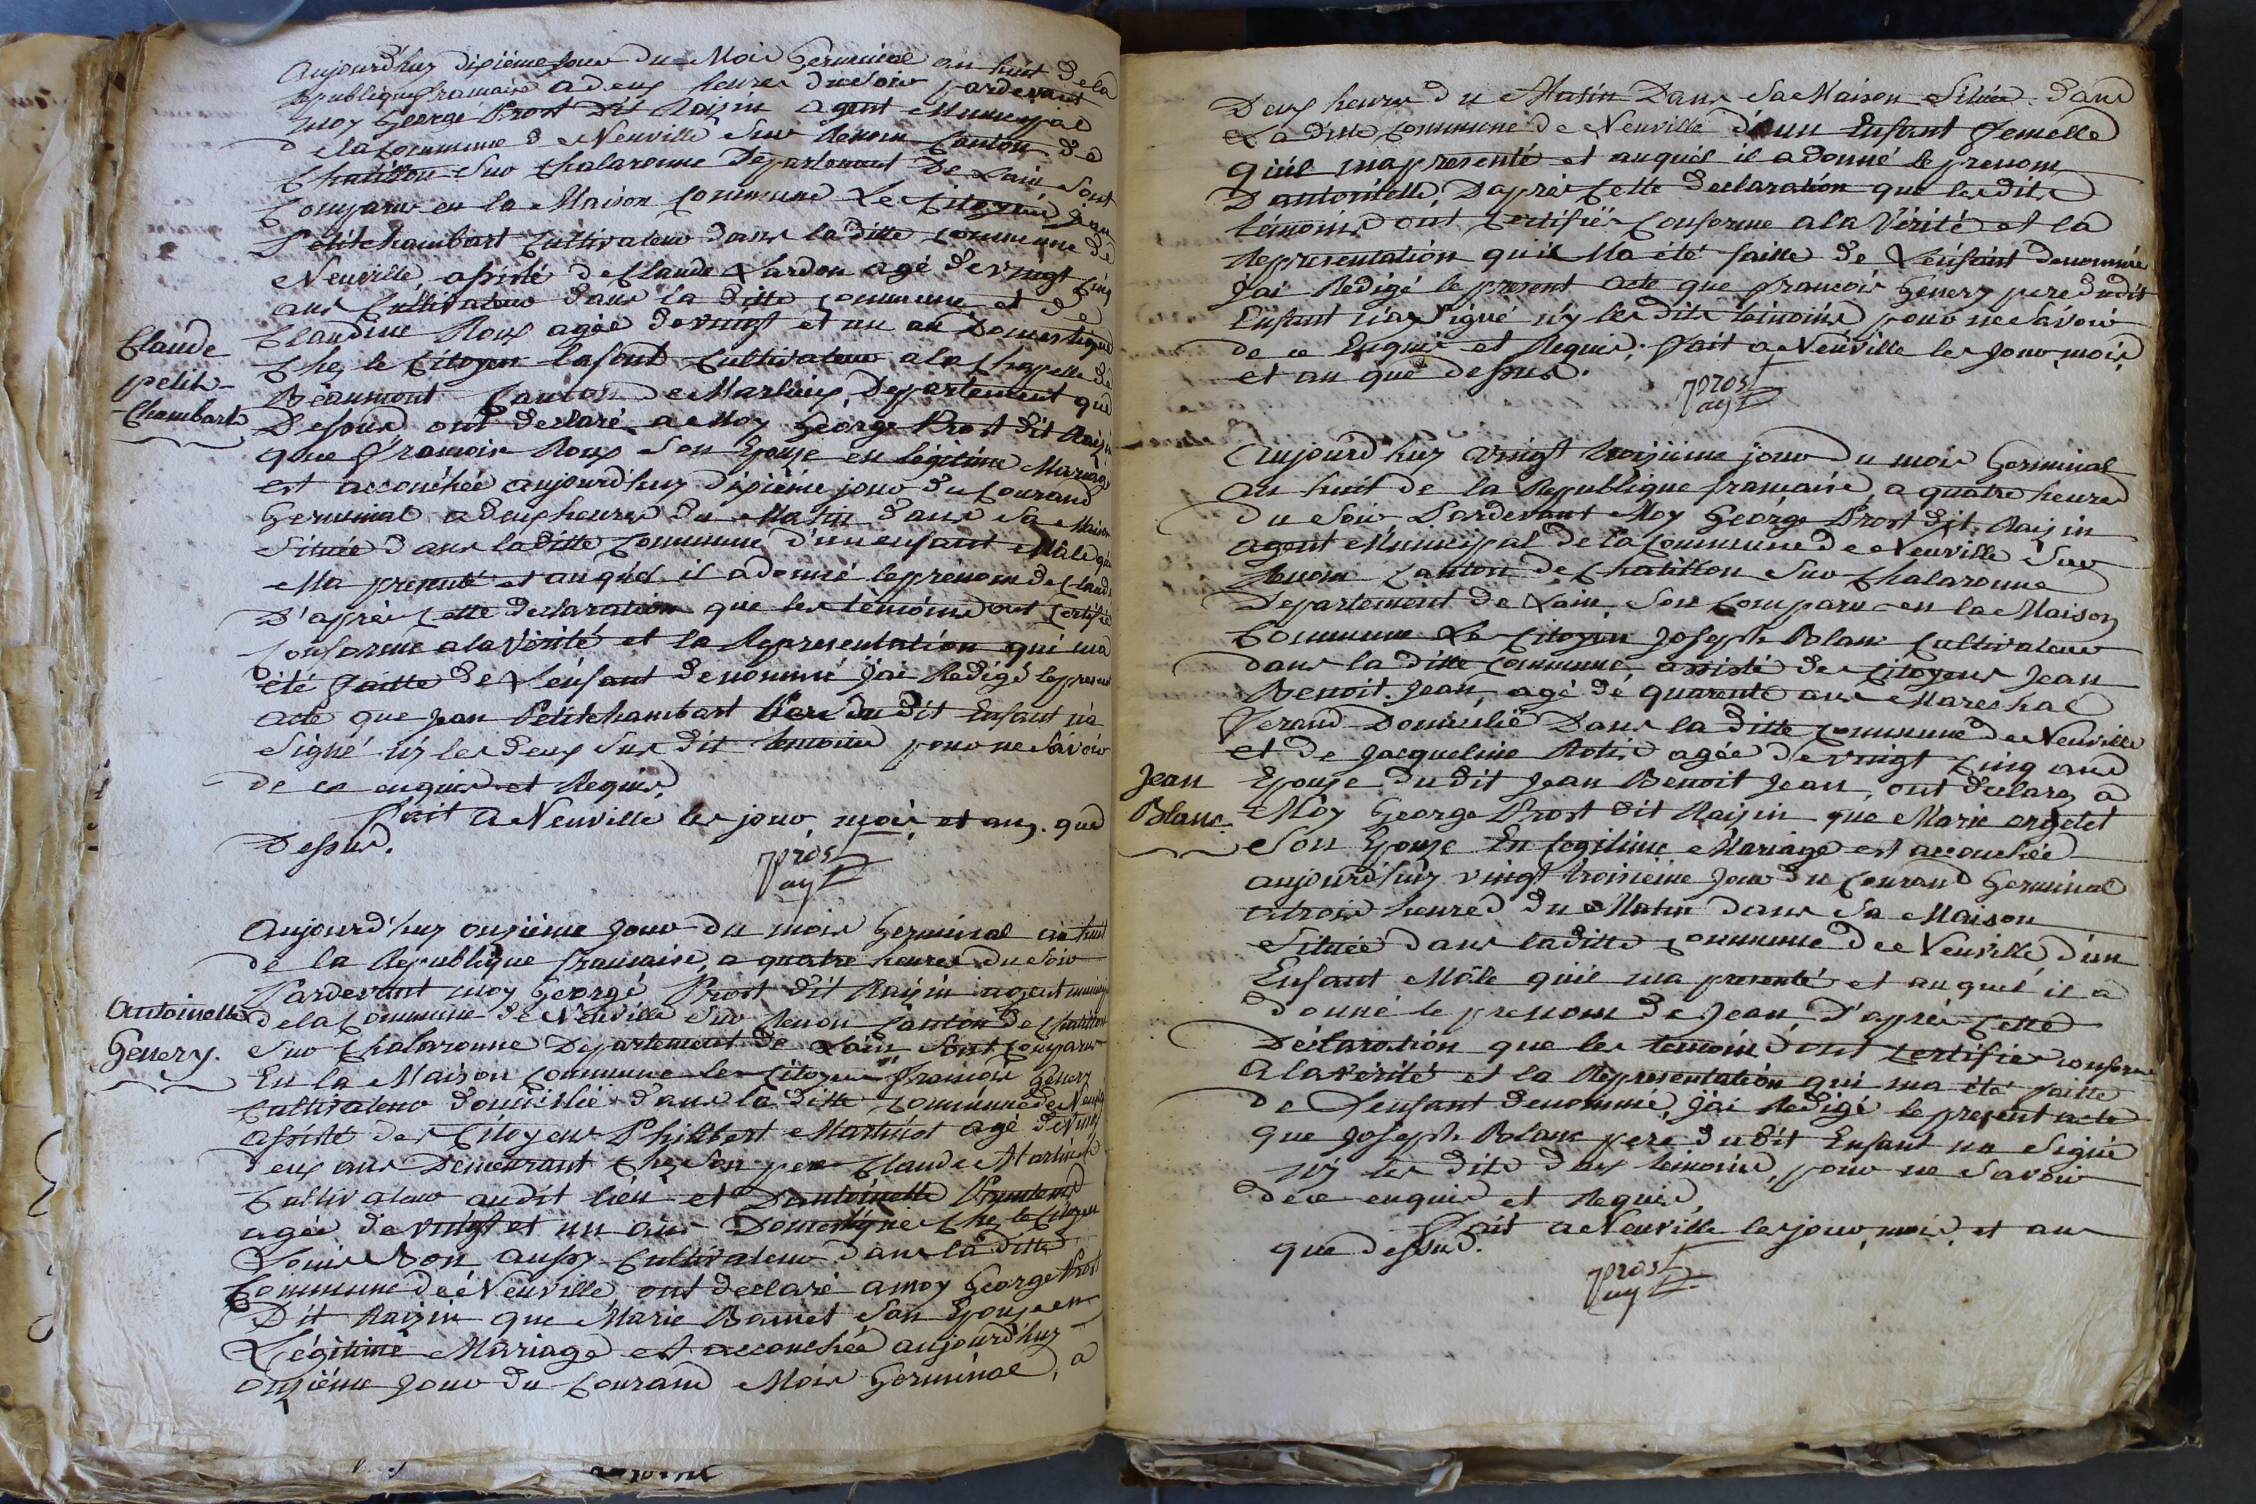 Aujourd'huy dixiéme Jour du Mois Germinal an huit de la
Republique francaise a deux heures du Soir pardevant
moy George Prost Dit Raisin agent Municipal
de la Commune de Neuville Sur Renom Canton de
Chatillon Sur Chalaronne Departement De Lain Sont
Comparus en la Maison Commune Le Citoyen Jean
Petitchambart Cultivateur dans la ditte Commune de
Neuville, assisté de Claude Lardon agé de vingt Cinq
ans Cultivateur dans la ditte Commune et de
Claudine Roux agée de vingt et un an Domestique
Chez le Citoyen Lafont Cultivateur a la Chapelle de
Béaumont Canton de Marlieux, Departement que
Dessus ont declaré a Moy George Prost dit Raisin
que Francoise Roux Son Epouse en légitime Mariage
est accouchée aujourd'huy dixiéme jour du Courand
Germinal a deux heures du Matin dans Sa Maison
Située dans la ditte Commune d'un enfant Mâle qui
Ma presenté et auquel il a donné le prénom de Claude
D'après Cette declaration que les témoins ont Certifié
Conforme a la Vérité et la Representation qui ma
été faitte de L'énfant denommé J'ai Redigé le present
acte que Jean Petitchambart Pere du dit Enfant n'a
Signé n'y les deux Sus dit temoins pour ne Savoir
de ce enquis et Requis,
Fait a Neuville les jour, mois, et an, que
Dessus.
Prost
agt
Claude
petit-
Chambart
Aujourd'huy onziéme Jour du mois Germinal an huit
de la République francaise, a quatre heures du Soir
Pardevant moy George Prost dit Raisin agent municipal
de la Commune de Neuville Sur Renon Canton de Chatillon
Sur Chalaronne Departement de Lain Sont Comparus
En la Maison Commune le Citoyen Francois Genery
Cultivateur domicilié dans la ditte Commune de Neuville
assisté des Citoyens Philibert Martinot agé de vingt
deux ans Demeurant chez Son pere Claude Martinot
Cultivateur audit lieu et Dantoinette
agée de vingt et un ans Domestique Chez le Citoyen
Louis aussy Cultivateur dans la ditte
Commune de Neuville ont declaré a moy George Prost
Dit Raisin que Marie Son Epouse en
Légitime Mariage est accouchée aujourd'huy
onziéme Jour du Courand Mois Germinal, a
Antoinette
Genery.
Deux heures du Matin Dans Sa Maison Située dans
La ditte Commune de Neuville d'un Enfant femelle
qu'il ma presenté et auquel il a donné le prenom
D'antoinette, D'après Cette declaration que les dits
témoins ont Certifiés Conforme a la Vérité et la
Representation qu'il Ma été faitte de L'énfant denommé
J'ai Redigé le present acte que francois Genery pere du dit
Enfant n'a Signé n'y les dits témoins pour ne Savoir
de ce Enquis et Requis, fait a Neuville les Jour, mois,
et an que dessus.
Prost
agt
Aujourd'huy vingt troisiéme jour du mois Germinal
an huit de la Republique francaise, a quatre heures
du Soir Pardevant Moy George Prost dit Raisin
agent Municipal de la Commune de Neuville Sur
Renom Canton de Chatillon Sur Chalaronne
Departement de Lain, Son Comparu en la Maison
Commune Le Citoyen Joseph Blanc Cultivateur
dans la ditte Commune, assisté des Citoyens Jean
Benoit Jean, agé de quarente ans Marechal
Ferand Domicilié Dans la ditte Commune de Neuville
et de Jacqueline agée de vingt Cinq ans
Epouse du dit Jean Benoit Jean, ont declaré a
Moy George Prost dit Raisin que Marie
Son Epouse En Legitime Mariage est accouchée
aujourd'huy vingt troisieme Jour du Courand Germinal
a trois heures du Matin dans Sa Maison
Située dans la ditte Commune de Neuville d'un
Enfant Mâle qu'il ma presenté et auquel il a
donné le prenom de Jean, D'après Cette
Déclaration que les temoins ont Certifiés conforme
a la vérité et la Representation qui ma été faitte
de L'enfant denommé, J'ai Redigé le present acte
que Joseph Blanc pere du dit Enfant na Signé
n'y les dits deux temoins, pour ne Savoir
de ce enquis et Requis,
Fait a Neuville les jour, mois, et an
que dessus.
Prost
agt
Jean
Blanc